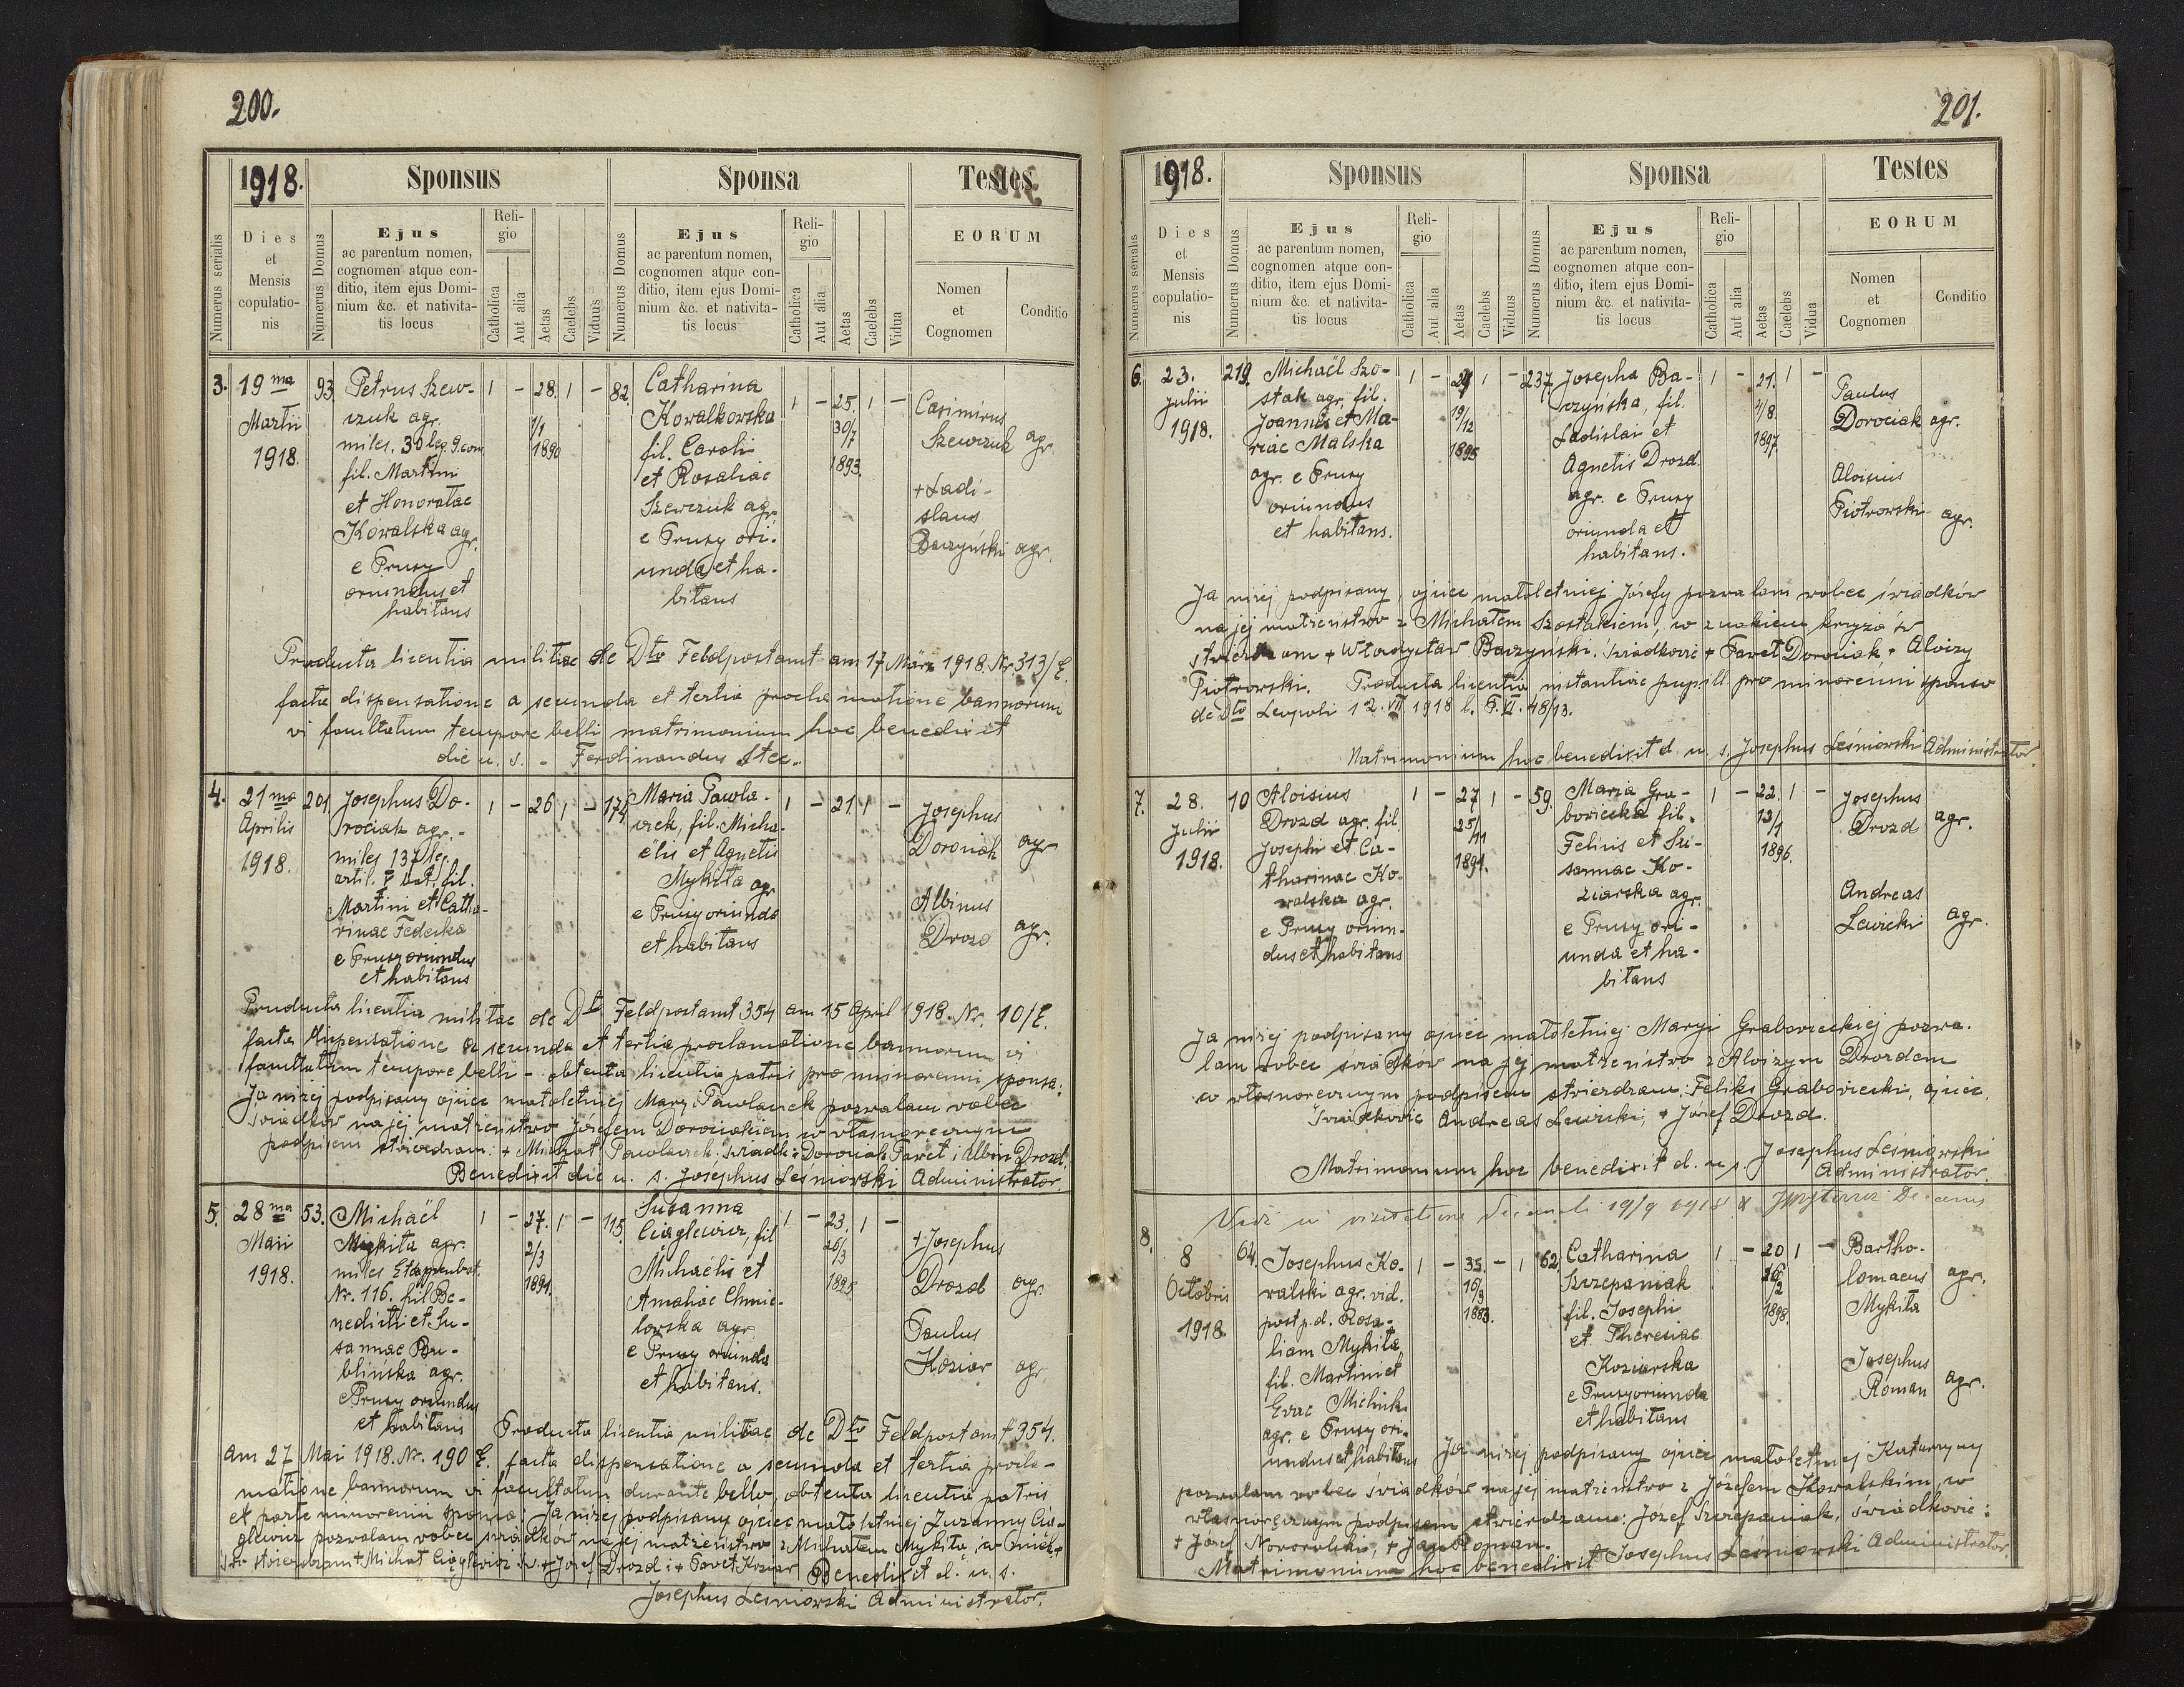 200.
1918.
Sponsus
Sponsa
Testes
Numerus serialis
Dies
et
Mensis
copulatio-
nis
Numerus Domus
Ejus
ac parentum nomen,
cognomen atque con-
ditio, item ejus Domi-
nium &c. et nativita-
tis locus
Reli-
gio
Catholica
Aut alia
Aetas
Caelebs
Viduus
Numerus Domus
Ejus
ac parentum nomen,
cognomen atque con-
ditio, item ejus Domi-
nium &c. et nativita-
tis locus
Reli-
gio
Catholica
Aut alia
Aetas
Caelebs
Vidua
EORUM
Nomen
et
Cognomen
Conditio
3.
19 ma
Martii
1918.
93
Petrus Szew-
czuk agr.
miles. 30 leg. 9. com.
fil. Martini
et Honoratae
Kowalska agr.
e Prusy
oriundus et
habitans
1 - 28. 1 -
1/1
1890
82.
Catharina
Kowalkowska
fil. Caroli
et Rosaliae
Szewczuk agr.
e Prusy ori-
unda et ha-
bitans
1 - 25. 1 -
30/7
1893.
Casimirus
Szewczuk agr.
+ Ladi-
slaus
Baczynski agr.
Producta licentia militiae de Dto Feldpostamt am 17 März 1918. Nr. 313/E.
facta dispensatione a secunda et tertia proclamatione bannorum
vi facultatum tempore belli matrimonium hoc benedixit
die u. s. - Ferdinandus Stec.
4.
21 ma
Aprilis
1918.
201
Josephus Do-
rociak agr. -
miles 137 leg.
artil. 5 bat. fil.
Martini et Catha-
rinae Federka
e Prusy oriundus
et habitans
1 - 26 1 -
174
Maria Pawla-
czek, fil. Micha-
ëlis et Agnetis
Mykita agr.
e Prusy oriunda
et habitans
1 - 21. 1 -
Josephus
Dorociak agr
Albinus
Drozd agr.
Producta licentia militiae de Dto Feldpostamt 354 am 15 April 1918. Nr. 10/E.
facta dispensatione a secunda et tertia proclamatione bannorum vi
facultatum tempore belli - obtenta licentia patris pro minorenni sponsa:
Ja niżej podpisany ojciec małoletniej Maryi Pawlaczek pozwalam wobec
świadków na jej małżeństwo z Józefem Dorociakiem w własnoręcznym
podpisem stwierdzam: + Michał Pawlaczek. świadk: Dorociak Paweł i Albin Drozd.
Benedixit die u. s. Josephus Leśniowski Administrator.
5.
28 ma
Maii
1918.
53.
Michaël
Mykita agr.
miles Etappenbat.
Nr. 116. fil Be-
nedicti et Su-
sannae Bu-
blińska agr.
e Prusy oriundus
et habitans
1 - 27. 1 -
2/3
1891.
115.
Susanna
Ciąglewicz, fil
Michaëlis et
Amaliae Chmie-
lowska agr
e Prusy oriunda
et habitans.
1 - 23. 1 -
26/3
1895
+ Josephus
Drozd agr
Paulus
Koziar agr
Producta licentia militiae de Dto Feldpostamt 354.
am 27 Mai 1918. Nr. 190 E. facta dispensatione a secunda et tertia procla-
matione bannorum vi facultatum durante bello, obtenta licentia patris
et parte minorenni sponsa: Ja niżej podpisany ojciec małoletniej Zuzanny Cią-
glewicz pozwalam wobec świadków na jej małżeństwo z Michałem Mykitą, w
stwierdzam + Michał Ciąglewicz św. + Józef Drozd: + Paweł Koziar Benedixit d. u. s.
Josephus Leśniowski Administrator.
201.
1918.
Sponsus
Sponsa
Testes
Numerus serialis
Dies
et
Mensis
copulatio-
nis
Numerus Domus
Ejus
ac parentum nomen,
cognomen atque con-
ditio, item ejus Domi-
nium &c. et nativita-
tis locus
Reli-
gio
Catholica
Aut alia
Aetas
Caelebs
Viduus
Numerus Domus
Ejus
ac parentum nomen,
cognomen atque con-
ditio, item ejus Domi-
nium &c. et nativita-
tis locus
Reli-
gio
Catholica
Aut alia
Aetas
Caelebs
Vidua
EORUM
Nomen
et
Cognomen
Conditio
6.
23.
Julii
1918.
219.
Michaël Szo-
stak agr, fil.
Joannis et Ma-
riae Malska
agr. e Prusy
oriundus
et habitans.
1 - 1 -
19/12
1895
237.
Josepha Ba-
czyńska, fil.
Ladislai et
Agnetis Drozd
agr. e Prusy
oriunda et
habitans.
1 - 21. 1 -
2/8
1897
Paulus
Dorociak agr.
Aloisius
Piotrowski agr.
Ja niżej podpisany, ojciec małoletniej Józefy pozwalam wobec świadków
na jej małżeństwo z Michałem Szostakiem, w znakiem krzyża św
stwierdzam + Władysław Baczyński. świadkowie + Paweł Dorociak, + Aloizy
Piotrowski. Producta licentia instantiae pupill. pro minorenni sponso
de Dto Leopoli 12. VII. 1918 l. P. VI. 48/13.
Matrimonium hoc benedixit d. u. s. Josephus Leśniowski Administrator.
7.
28.
Julii
1918.
10
Aloisius
Drozd agr. fil
Josephi et Ca-
tharinae Ko-
walska agr.
e Prusy oriun-
dus et habitans
1 - 27 1 -
25/11
1891.
59.
Maria Gra-
bowiecka fil.
Felicis et Su-
sannae Ko-
ziarska agr.
e Prusy ori-
unda et ha-
bitans
1 - 22. 1 -
13/1
1896.
Josephus
Drozd agr.
Andreas
Lewicki agr.
Ja niżej podpisany ojciec małoletniej Maryi Grabowieckiej pozwa-
lam wobec świadków na jej małżeństwo z Aloizym Drozdem
w własnoręcznym podpisem stwierdzam: Feliks Grabowiecki, ojciec.
Świadkowie Andreas Lewicki, + Józef Drozd.
Matrimonium hoc benedixit d. u. s. Josephus Leśniowski
Administrator.
Vidi in visitatione decanali 19/9 1918
8.
8
Octobris
1918
64.
Josephus Ko-
walski agr. vid.
post p. d. Rosa-
liam Mykita,
fil. Martini et
Evae Michnik
agr. e Prusy ori-
undus et habitans
1 - 35. - 1
16/3
1883.
62
Catharina
Szczepaniak
fil. Josephi
et Theresiae
Koziarska
e Prusy oriunda
et habitans
1 - 20 1 -
26/2
1898.
Bartho-
lomaeus agr.
Mykita
Josephus
Roman agr.
Ja niżej podpisany ojciec małoletniej Katarzyny
pozwalam wobec świadków na jej małżeństwo z Józefem Kowalskim, w
własnoręcznym podpisem stwierdzam: Józef Szczepaniak, świadkowie:
+ Józef Noworolski, + Jan Roman.
Matrimonium hoc benedixit Josephus Leśniowski Administrator.